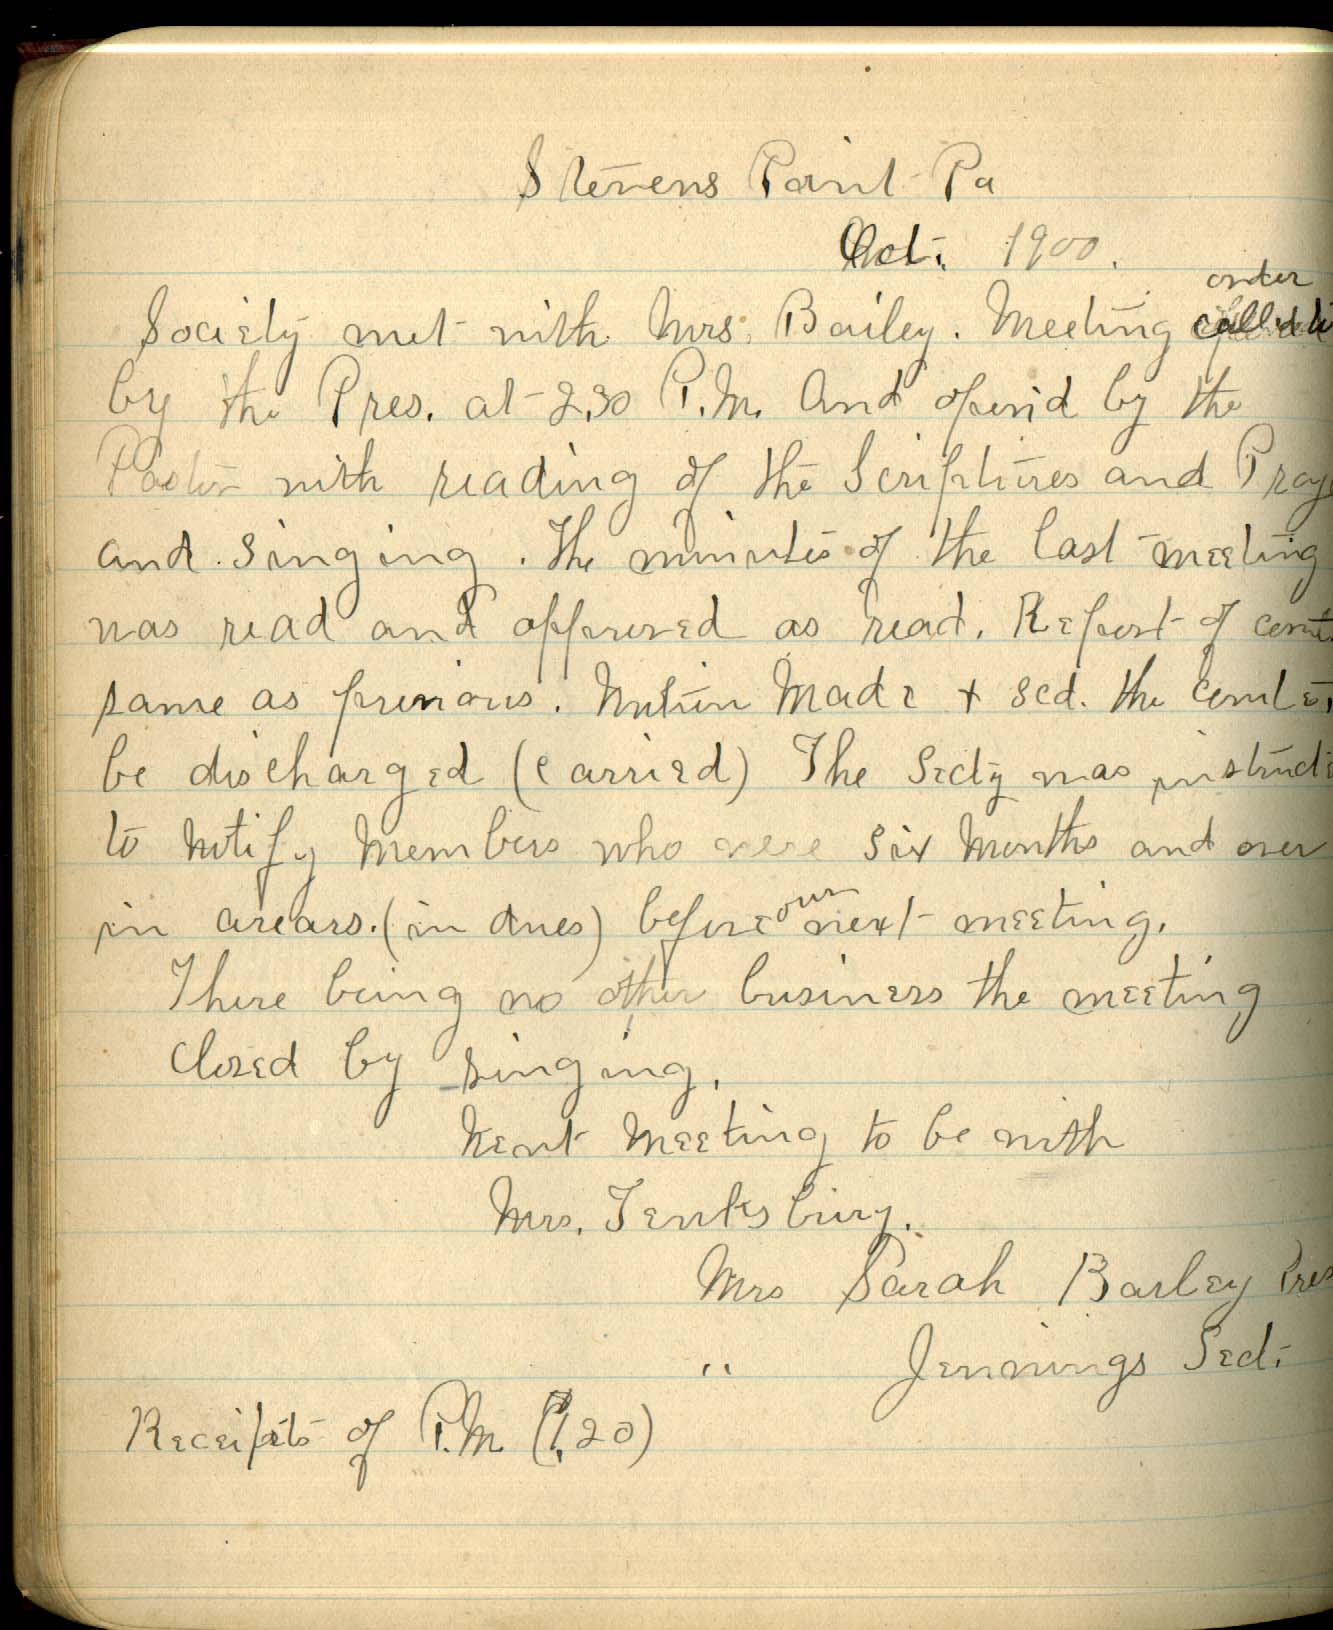 Stevens Point Pa
Oct. 1900.
order
Society met with Mrs. Bailey. Meeting called to
by the Pres. at 2.30 P.M. And openid by the
Pastor with reading of the Scriptures and Praye
and singing. The minutes of the last meeting
was read and approved as read. Report of comt
same as previous. Motion Made + Scd. the Comt
be discharged (carried) The Secty was instructe
to Notify Members who were six Months and over
in arears. (in dues) before our next meeting.
There being no other business the meeting
Closed by singing.
Next Meeting to be with
Mrs. Tenksbury.
Mrs Sarah Barley Pres
" Jennings Sect.
Receipts of P.M. 20)